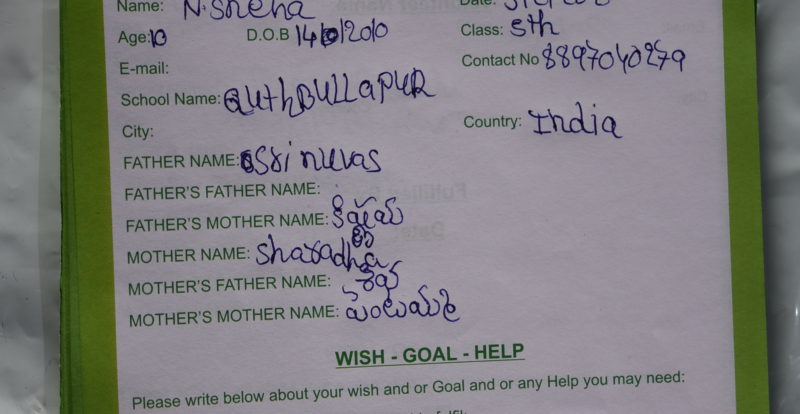 Name: N. Sneha
Age: 10 D.O.B 14/ /2010 Class: 5th
E-mail: Contact No 8897040279
School Name: QUthBULLAPUR
City: Country: India
FATHER NAME: Srinuvas
FATHER'S FATHER NAME:
FATHER'S MOTHER NAME:
MOTHER NAME: Sharadha
MOTHER'S FATHER NAME:
MOTHER'S MOTHER NAME:
WISH - GOAL - HELP
Please write below about your wish and or Goal and or any Help you may need: